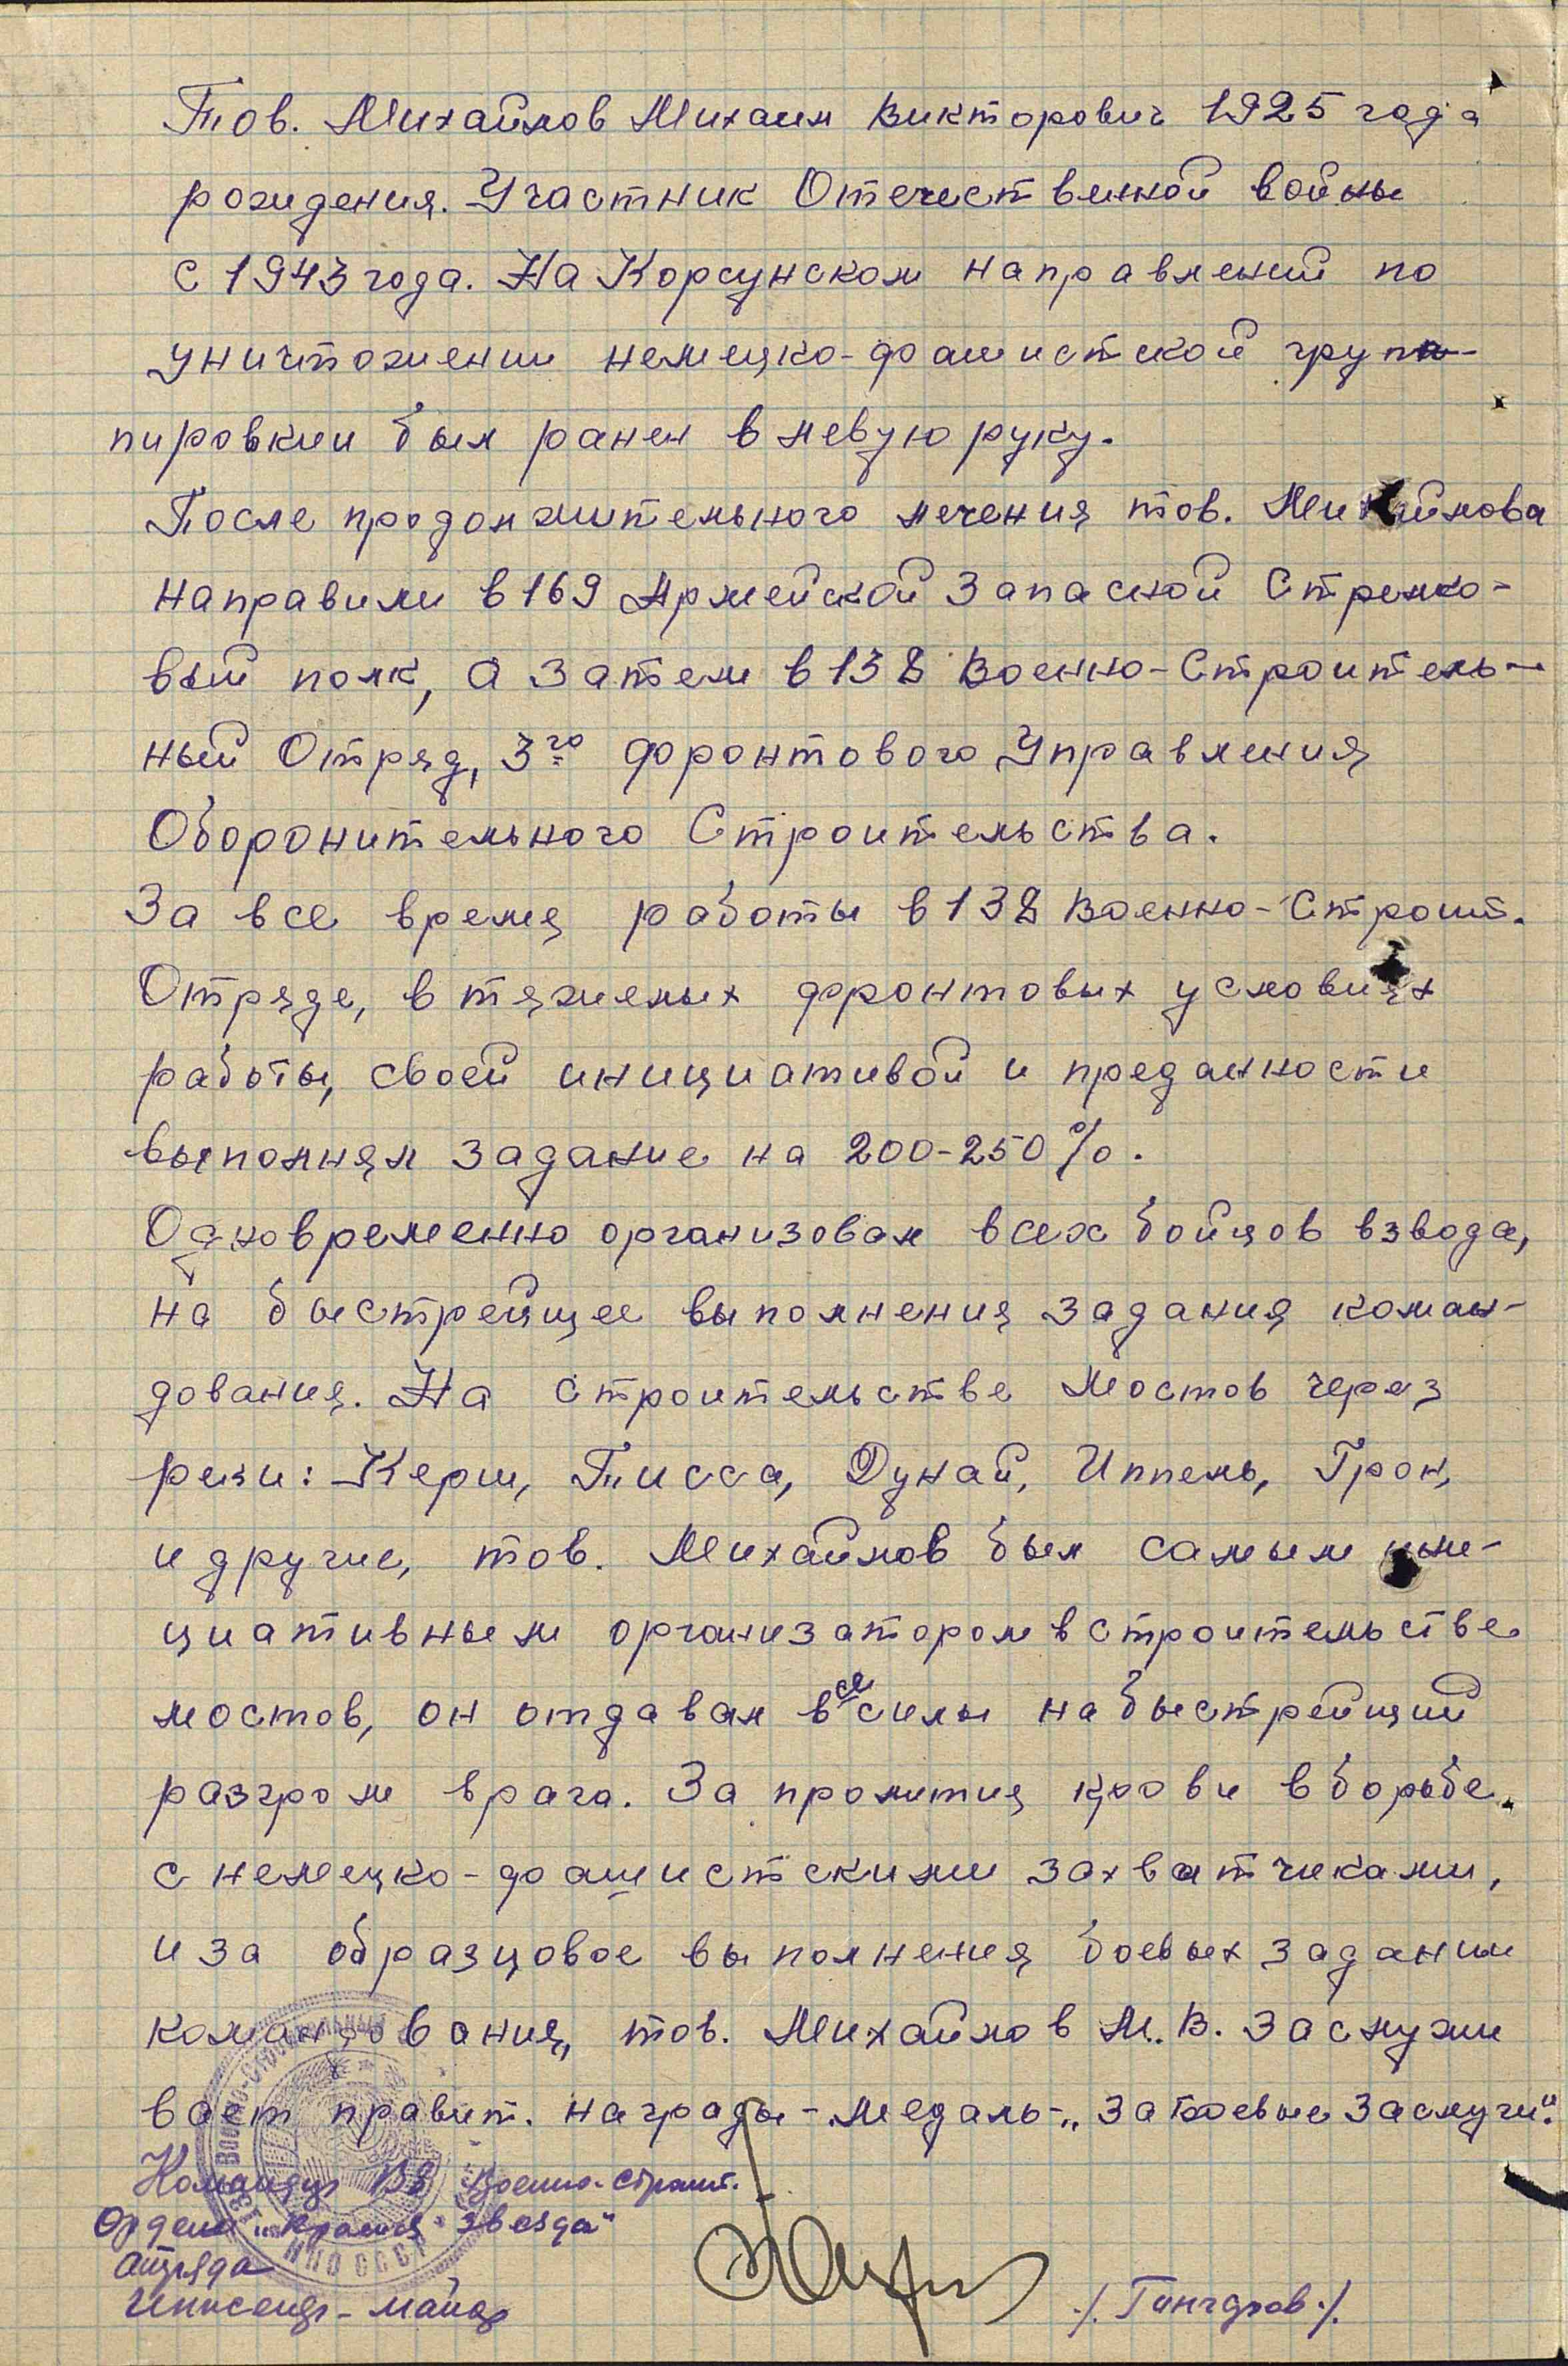 Тов. Михайлов Михаил Викторович 1925 года
рождения. Участник Отечественной войны
с 1943 года. На Корсунском направлений по
уничтожении немецко-фашистской груп-
пировкии был ранен в левую руку.
После продолжительного лечения тов. Михайлова
направили в 169 Армейской Запасной Стрелко-
вый полк, а затем в 138 Военно-Строитель-
ный Отряд, 3го фронтового Управления
Оборонительного Строительства.
За все время работы в 138 Военно-Строит.
Отряде, в тяжелых фронтовых условиях
работы, своей инициативой и преданности
выполнял задание на 200-250%.
Одновременно организовал всех бойцов взвода,
на быстрейщее выполнения задания коман-
дования. На строительстве мостов через
реки: Кериш, Тисса, Дунай, Иппель, Грон,
и другие, тов. Михайлов был самым ини-
циативным организатором в строительстве
мостов, он отдавал все силы на быстрейщий
разгром врага. За пролития крови в борьбе
с немецко-фашистскими захватчиками,
и за образцовое выполнения боевых задании
командования, тов. Михайлов М.В. заслужи
вает правит. награды - медаль - „За боевые заслуги“.
Командир 138 Военно-строит.
Ордена „Красная звезда“
отряда
Инженер-майор
НКО СССР